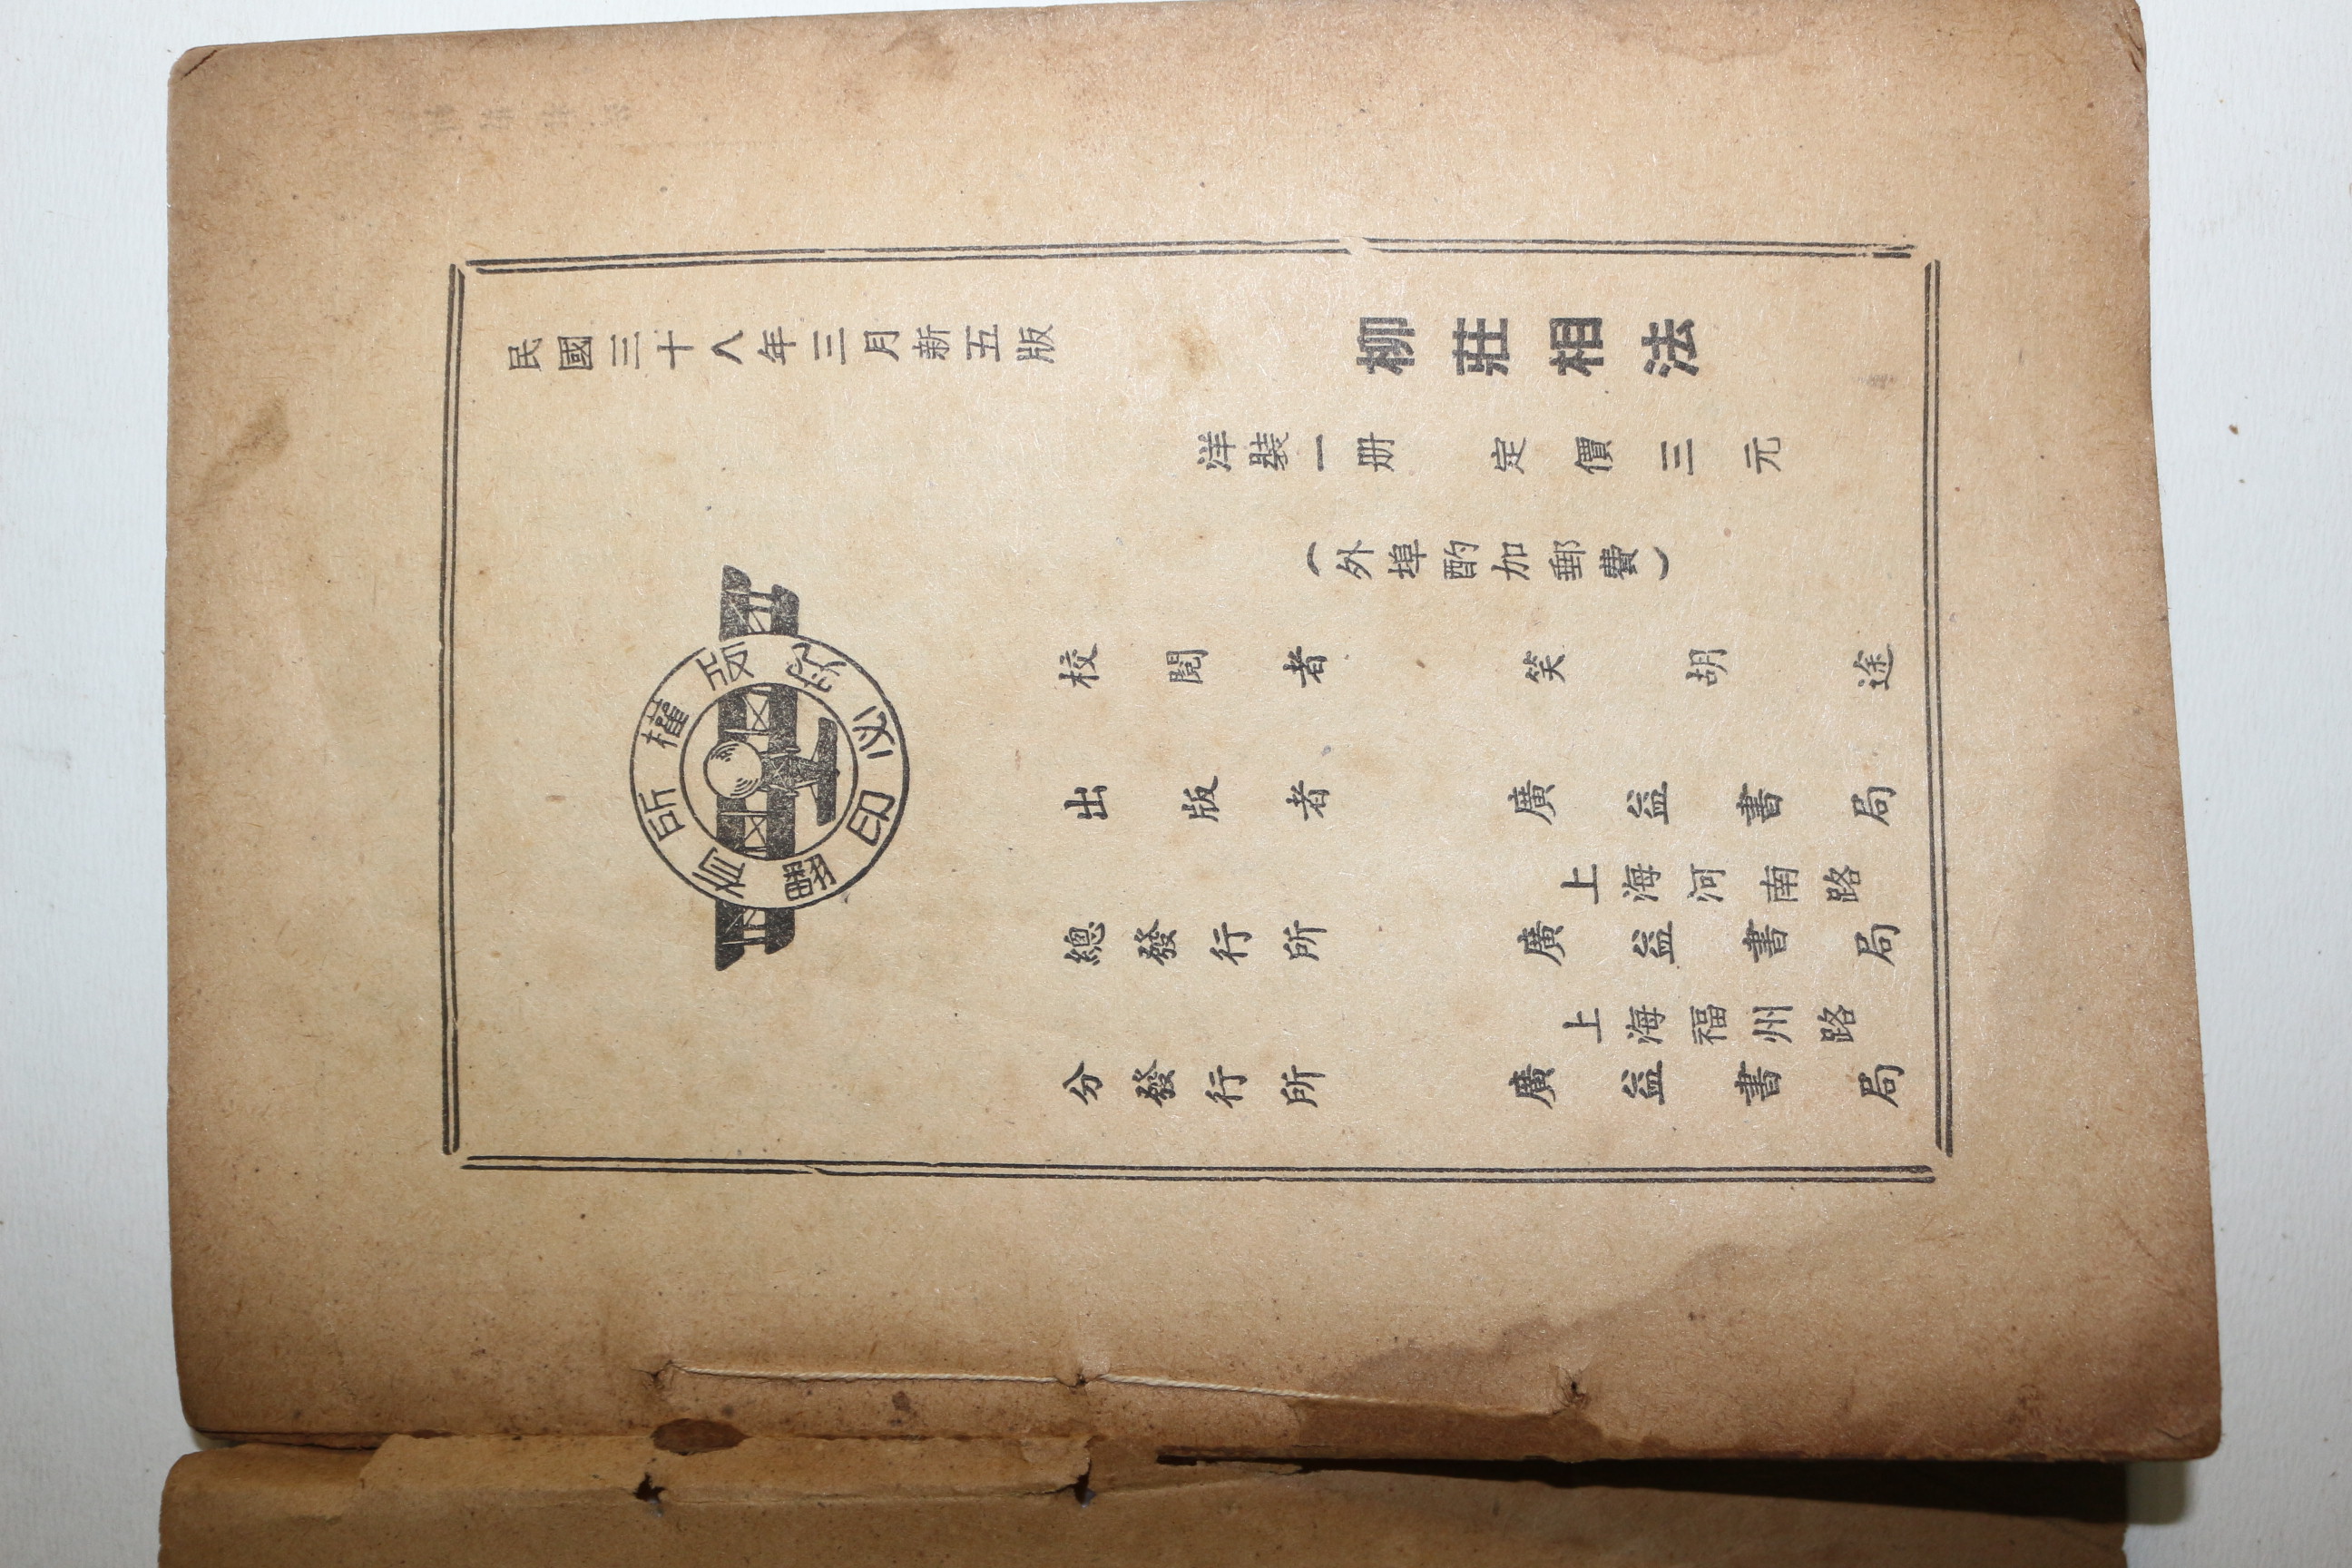 民國三十八年三月新五版
版權所有
翻印必究
柳莊相法
洋裝一册 定價三元
（外埠酌加郵費）
校閱者 笑胡途
出版者 廣益書局
上海河南路
總發行所 廣益書局
上海福州路
分發行所 廣益書局